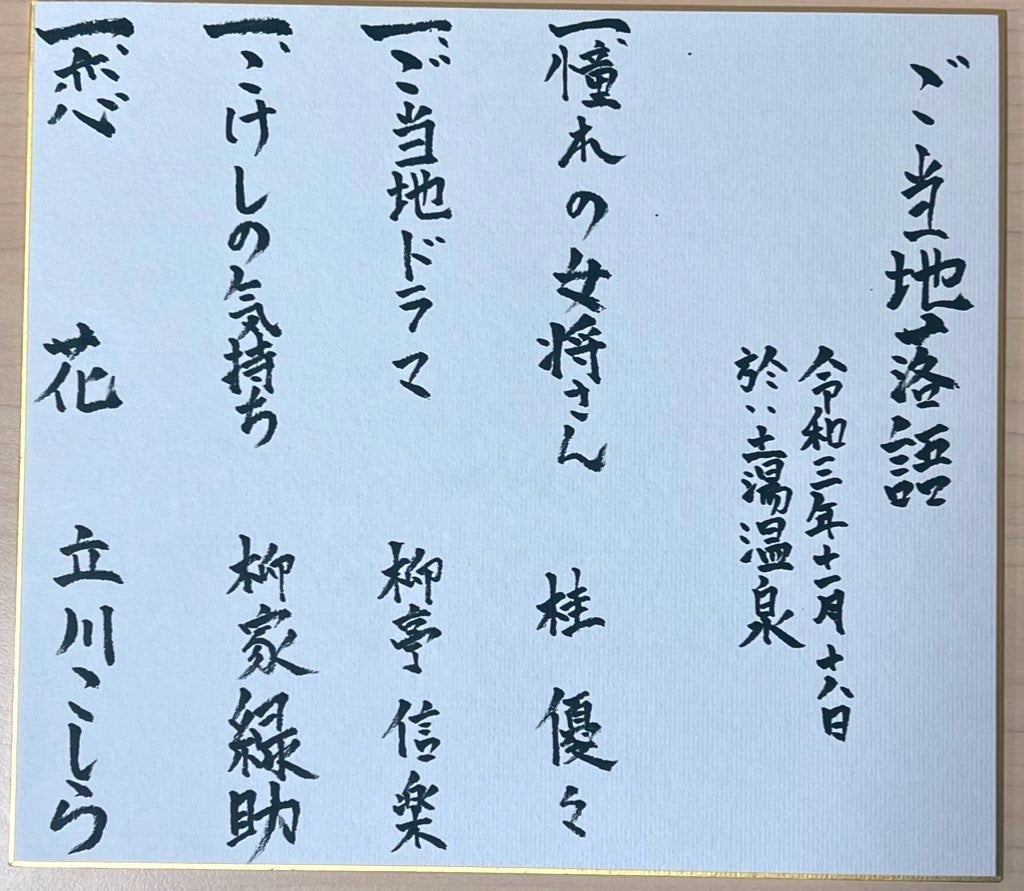 ご当地落語
令和三年十一月十八日
於：土湯温泉
一、憧れの女将さん 桂優々
一、ご当地ドラマ 柳亭信楽
一、こけしの気持ち 柳家緑助
一、恋花 立川こしら